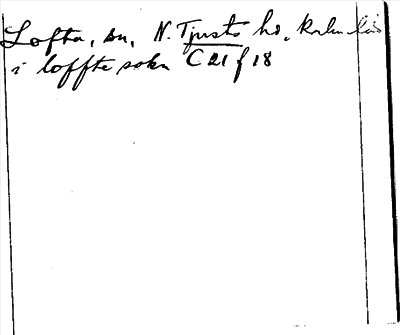 Lofta, sn, N. Tjusts hd, Kalm län
i loffte sokn C 21 f 18